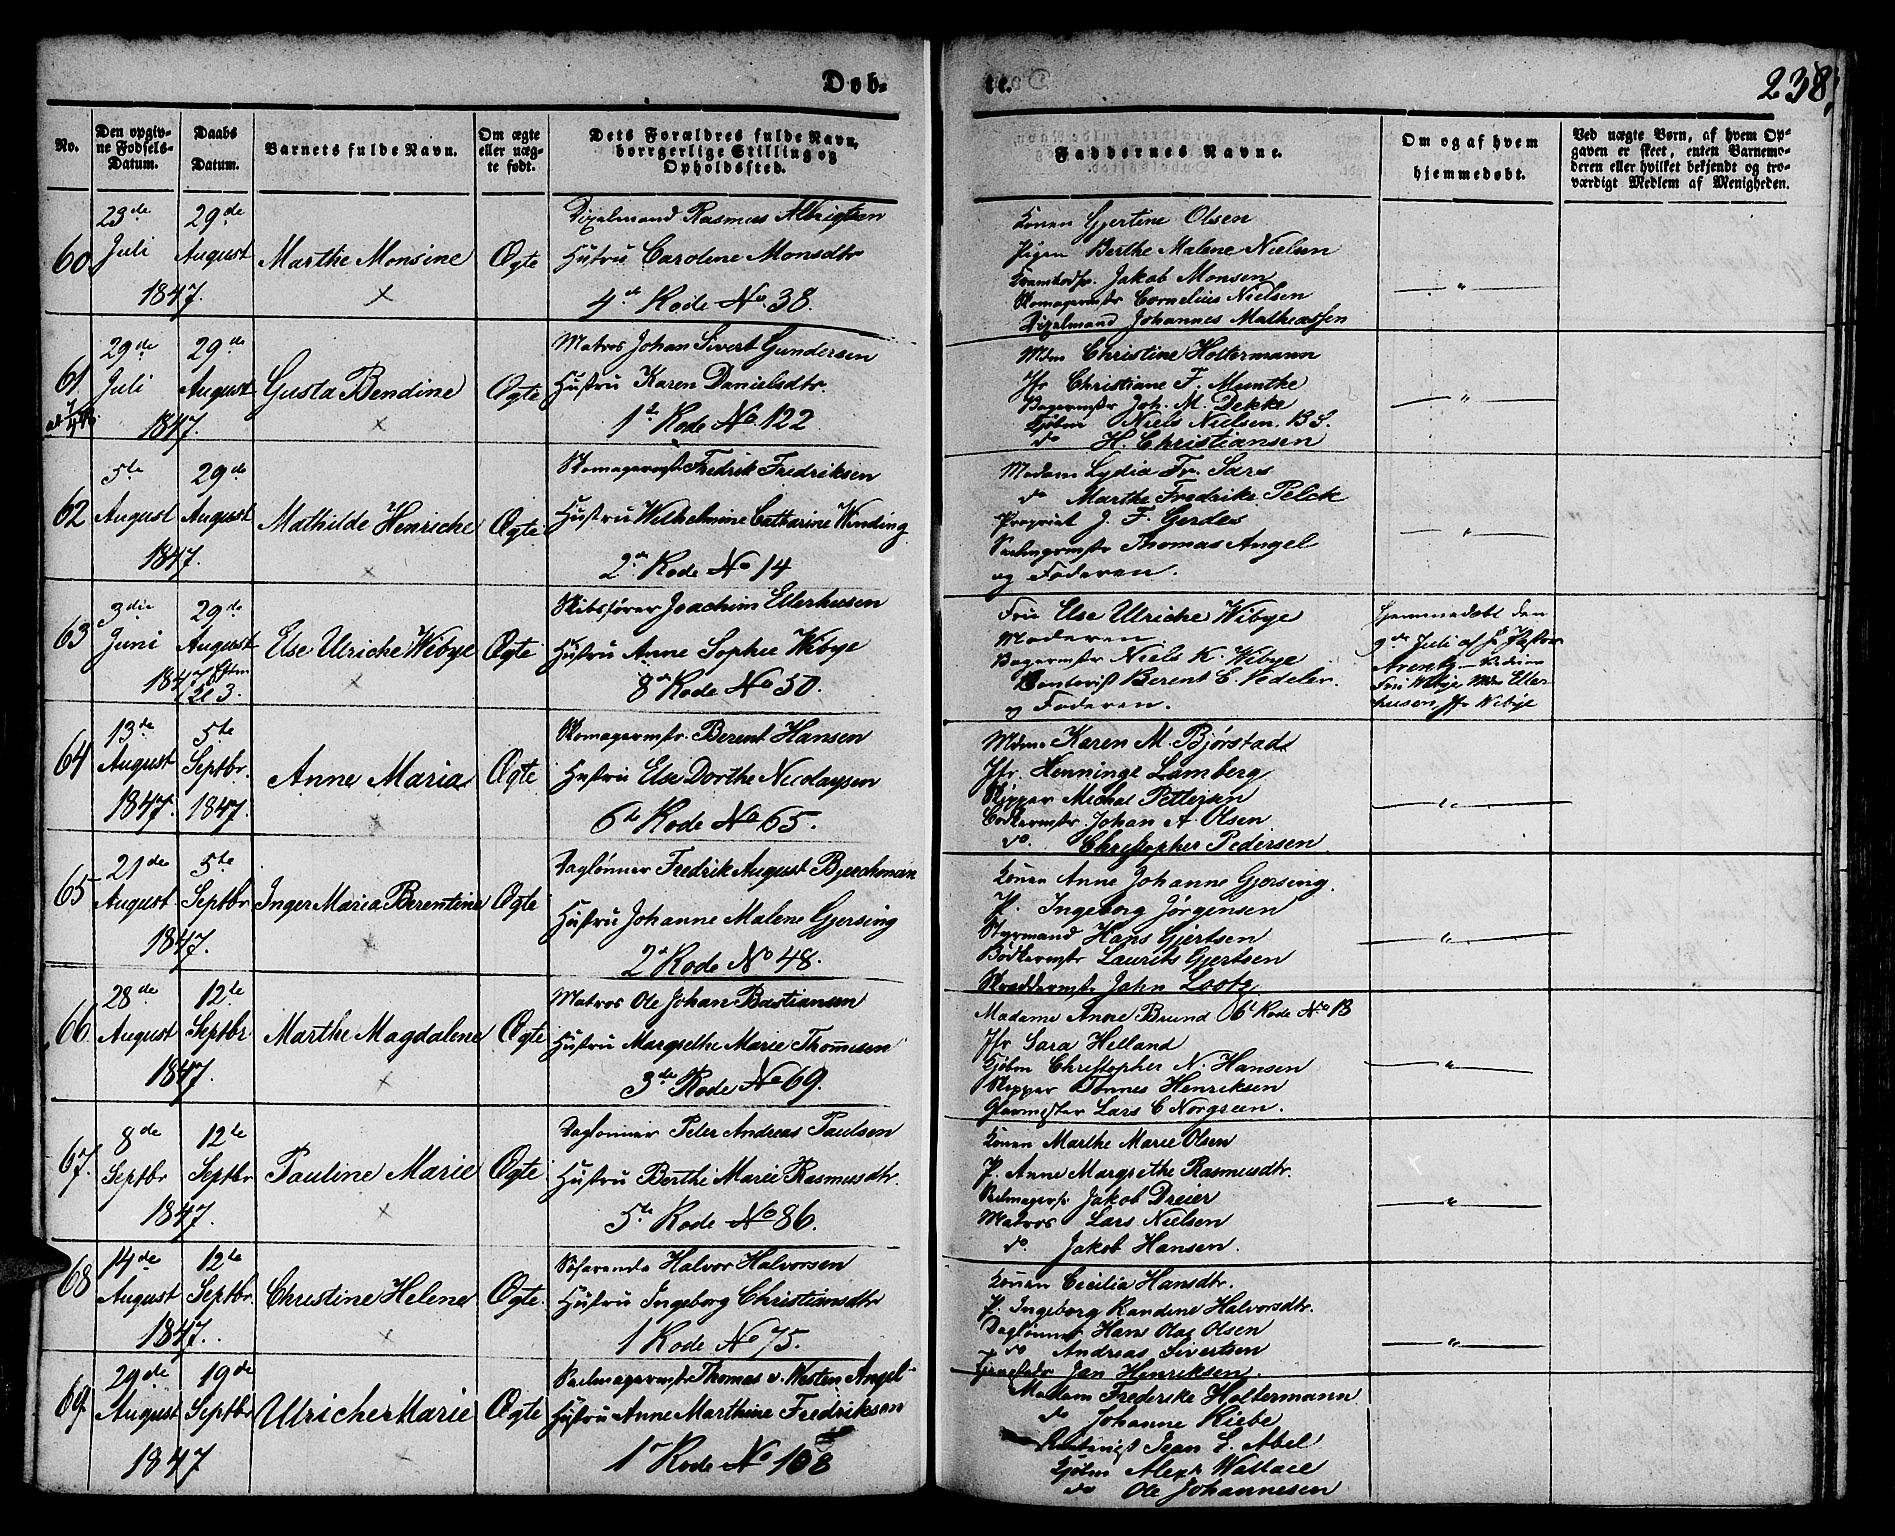 Døb-
te.
238.
No.
Den opgiv-
ne Fødsels-
Datum.
Daabs
Datum.
Barnets fulde Navn.
Om ægte
eller uæg-
te født.
Dets Forældres fulde Navn,
borrgerlige Stilling og
Opholdssted.
Faddernes Navne.
Om og af hvem
hjemmedøbt.
Ved uægte Børn, af hvem Op-
gaven er skeet, enten Barnemo-
deren eller hvilket bekjendt og tro-
værdigt Medlem af Menigheden.
60
23de
Juli
29de
August
1847.
Marthe Monsine
Ægte
Rasmus Albrigtsen
Hustru Carolene Monsdtr
4de Rode No. 38.
Konen Gjertine Olsen
Pigen Berthe Malene Nielsen
Jakob Monsen
Skomagermstr Cornelius Nielsen
Johannes Matheassen
"
61
29de
Juli
29de
August
1847.
Gusta Bendine
Ægte
Matros Johan Sivert Gundersen
Hustru Karen Danielsdtr.
1te Rode No. 122
Mdm Christine Holtermann
Jfr Christiane F. Munthe
Bagermstr Joh. M. Dekke
Kjøbm Niels Nielsen. B S.
do H. Christiansen
"
62
5te
August
29de
August
1847.
Mathilde Henriche
Ægte
Skomagermstr Fredrik Fredriksen
Hustru Wilhelmine Catharine Winding
2de Rode No 14
Madam Lydia Fr. Sars
do Marthe Fredrike Pelck
Propriet J. F. Gerdes
Thomas Angel
og Faderen.
"
63
3die
Juni
29de
August
1847
Kl 3.
Else Ulriche Wibye
Ægte
Skibsfører Joachim Ellerhusen
Hustru Anne Sophie Wibye
8de Rode No 50.
Fru Else Ulriche Wibye
Moderen
Bagermstr Niels K. Wibye
Kontorist Berent E. Vedeler.
og Faderen.
Hjemmedøbt den
9de Juli af Hr Pastor
Arentz
Fru Wibye Mdm Eller-
husen, Jfr Wibye
64
13de
August
1847.
5te
Septbr.
1847.
Anne Maria
Ægte
Skomagermstr. Berent Hansen
Hustru Else Dorthe Nicolaysen
6te Rode No 65.
Mdme Karen M. Bjørstad
Jfr. Henninge Lamberg
Skipper Michal Pettersen
Bødkermstr. Johan A. Olsen
do. Christopher Pedersen
"
65
21de
August
5te
Septbr
1847.
Inger Maria Berentine
Ægte
Daglønner Fredrik August Bjerchman
Hustru Johanne Malene Gjersing
2d Rode No 48.
Konen Anne Johanne Gjersing.
P. Ingeborg Jørgensen
Styrmand Hans Gjertsen
Bødkermstr Laurits Gjertsen
Skræddermstr John Lootz
"
66
28de
August
12te
Septbr
1847.
Marthe Magdalene
Ægte
Matros Ole Johan Bastiansen
Hustru Margrethe Marie Thommesen
3de Rode No 69.
Madame Anne Brund 6te Rode No 13
Jfr Sara Helland
Kjøbm Christopher N. Hansen
Skipper Tønnes Henriksen
Glarmester Lars C Norgreen.
"
67.
8de
Septbr
12te
Septbr
1847.
Pauline Marie
Ægte
Daglønner Peter Andreas Paulsen
Hustru Berthe Marie Rasmusdtr.
5te Rode No 86.
Konen Marthe Marie Olsen
P. Anne Margrethe Rasmusdtr.
Jakob Dreier
Matros Lars Nielsen
do. Jakob Hansen.
"
68
14de
August
12te
Septbr.
1847.
Christine Helene
Ægte
Søfarende Halvor Halvorsen
Hustru Ingeborg Christiansdtr
1 Rode No 75.
Konen Cecilia Hansdtr.
P. Ingeborg Randene Halvorsdtr.
Daglønner Hans Olai Olsen
do Andreas Sivertsen
Jan Henriksen.
"
69
29de
August
19de
Septbr
1847
Ulriche Marie
Ægte
Thomas v. Westen Angel
Hustru Anne Marthine Fredriksen
1e Rode No 108
Madam Frederike Holtermann
do Johanne Riebe
Jean L. Abel
Kjøbm Alexr Wallace
do Ole Johannesen